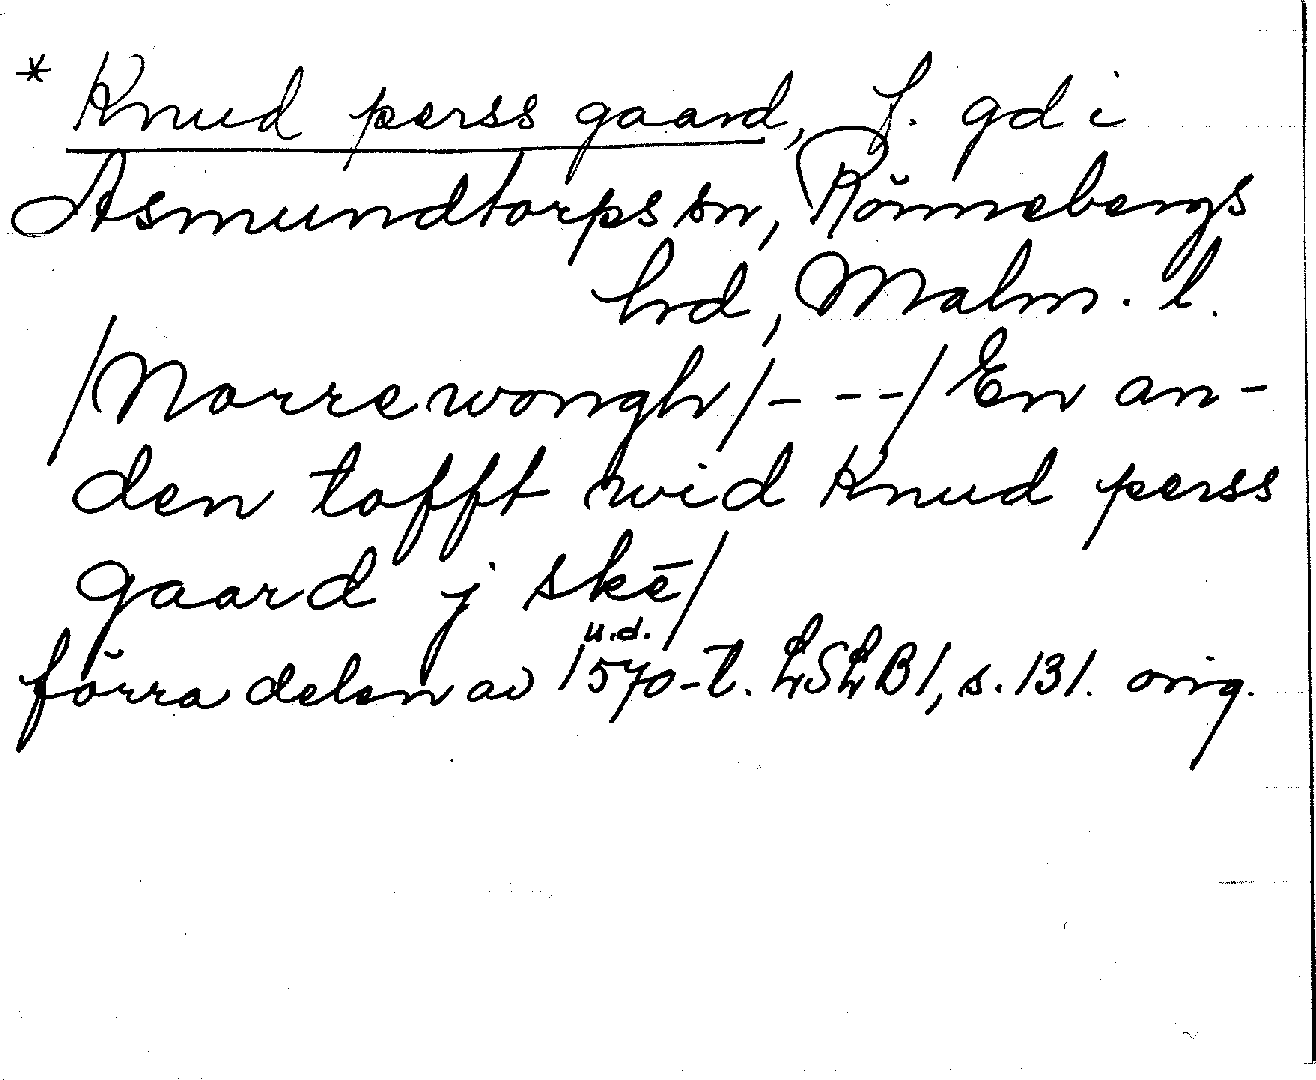 * Knud perss gaard, f. gd i
Asmundtorps sn, Rönnebergs
hrd, Malm. l.
/Norrewongh/---/En an-
den tofft wid Knud perss
gaard j skē/
u.d.
förra delen av 1570-t. LSLB1, s. 131. orig.